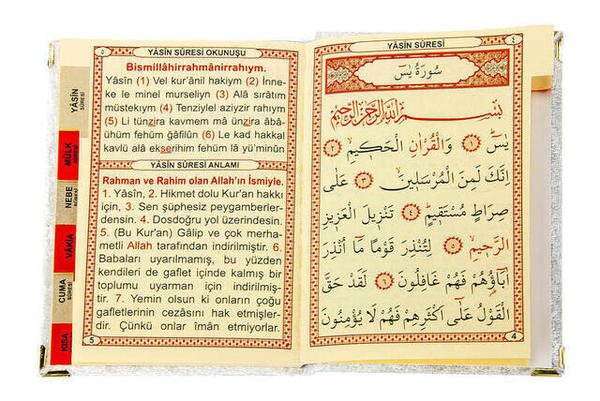 ٤
YÂSİN SÛRESİ
سُورَةُ يٰسٓ
بِسْمِ اللّٰهِ الرَّحْمٰنِ الرَّحٖيمِ
يٰسٓ ﴿١﴾ وَالْقُرْاٰنِ الْحَكٖيمِ ﴿٢﴾
اِنَّكَ لَمِنَ الْمُرْسَلٖينَ ﴿٣﴾ عَلٰى
صِرَاطٍ مُسْتَقٖيمٍ ﴿٤﴾ تَنْزٖيلَ الْعَزٖيزِ
الرَّحٖيمِ ﴿٥﴾ لِتُنْذِرَ قَوْمًا مَٓا اُنْذِرَ
اٰبَٓاؤُ۬هُمْ فَهُمْ غَافِلُونَ ﴿٦﴾ لَقَدْ حَقَّ
الْقَوْلُ عَلٰٓى اَكْثَرِهِمْ فَهُمْ لَا يُؤْمِنُونَ
4
٥
YÂSİN SÛRESİ OKUNUŞU
Bismillâhirrahmânirrahıym.
Yâsîn (1) Vel kur'ânil hakiym (2) İnne-
ke le minel murseliyn (3) Alâ sırâtım
müstekıym (4) Tenziylel aziyzir rahıym
(5) Li tünzira kavmem mâ ünzira âbâ-
ühüm fehüm ğâfilûn (6) Le kad hakkal
kavlü alâ ekserihim fehüm lâ yü'minûn
YÂSİN SÛRESİ ANLAMI
Rahman ve Rahim olan Allah'ın İsmiyle.
1. Yâsîn, 2. Hikmet dolu Kur'an hakkı
için, 3. Sen şüphesiz peygamberler-
densin. 4. Dosdoğru yol üzerindesin.
5. (Bu Kur'an) Gâlip ve çok merha-
metli Allah tarafından indirilmiştir. 6.
Babaları uyarılmamış, bu yüzden
kendileri de gaflet içinde kalmış bir
toplumu uyarman için indirilmiş-
tir. 7. Yemin olsun ki onların çoğu
gafletlerinin cezâsını hak etmişler-
dir. Çünkü onlar îmân etmiyorlar.
5
YÂSİN
SÛRESİ
MÜLK
SÛRESİ
NEBE
SÛRESİ
VÂKIA
CUMA
SÛRESİ
KISA